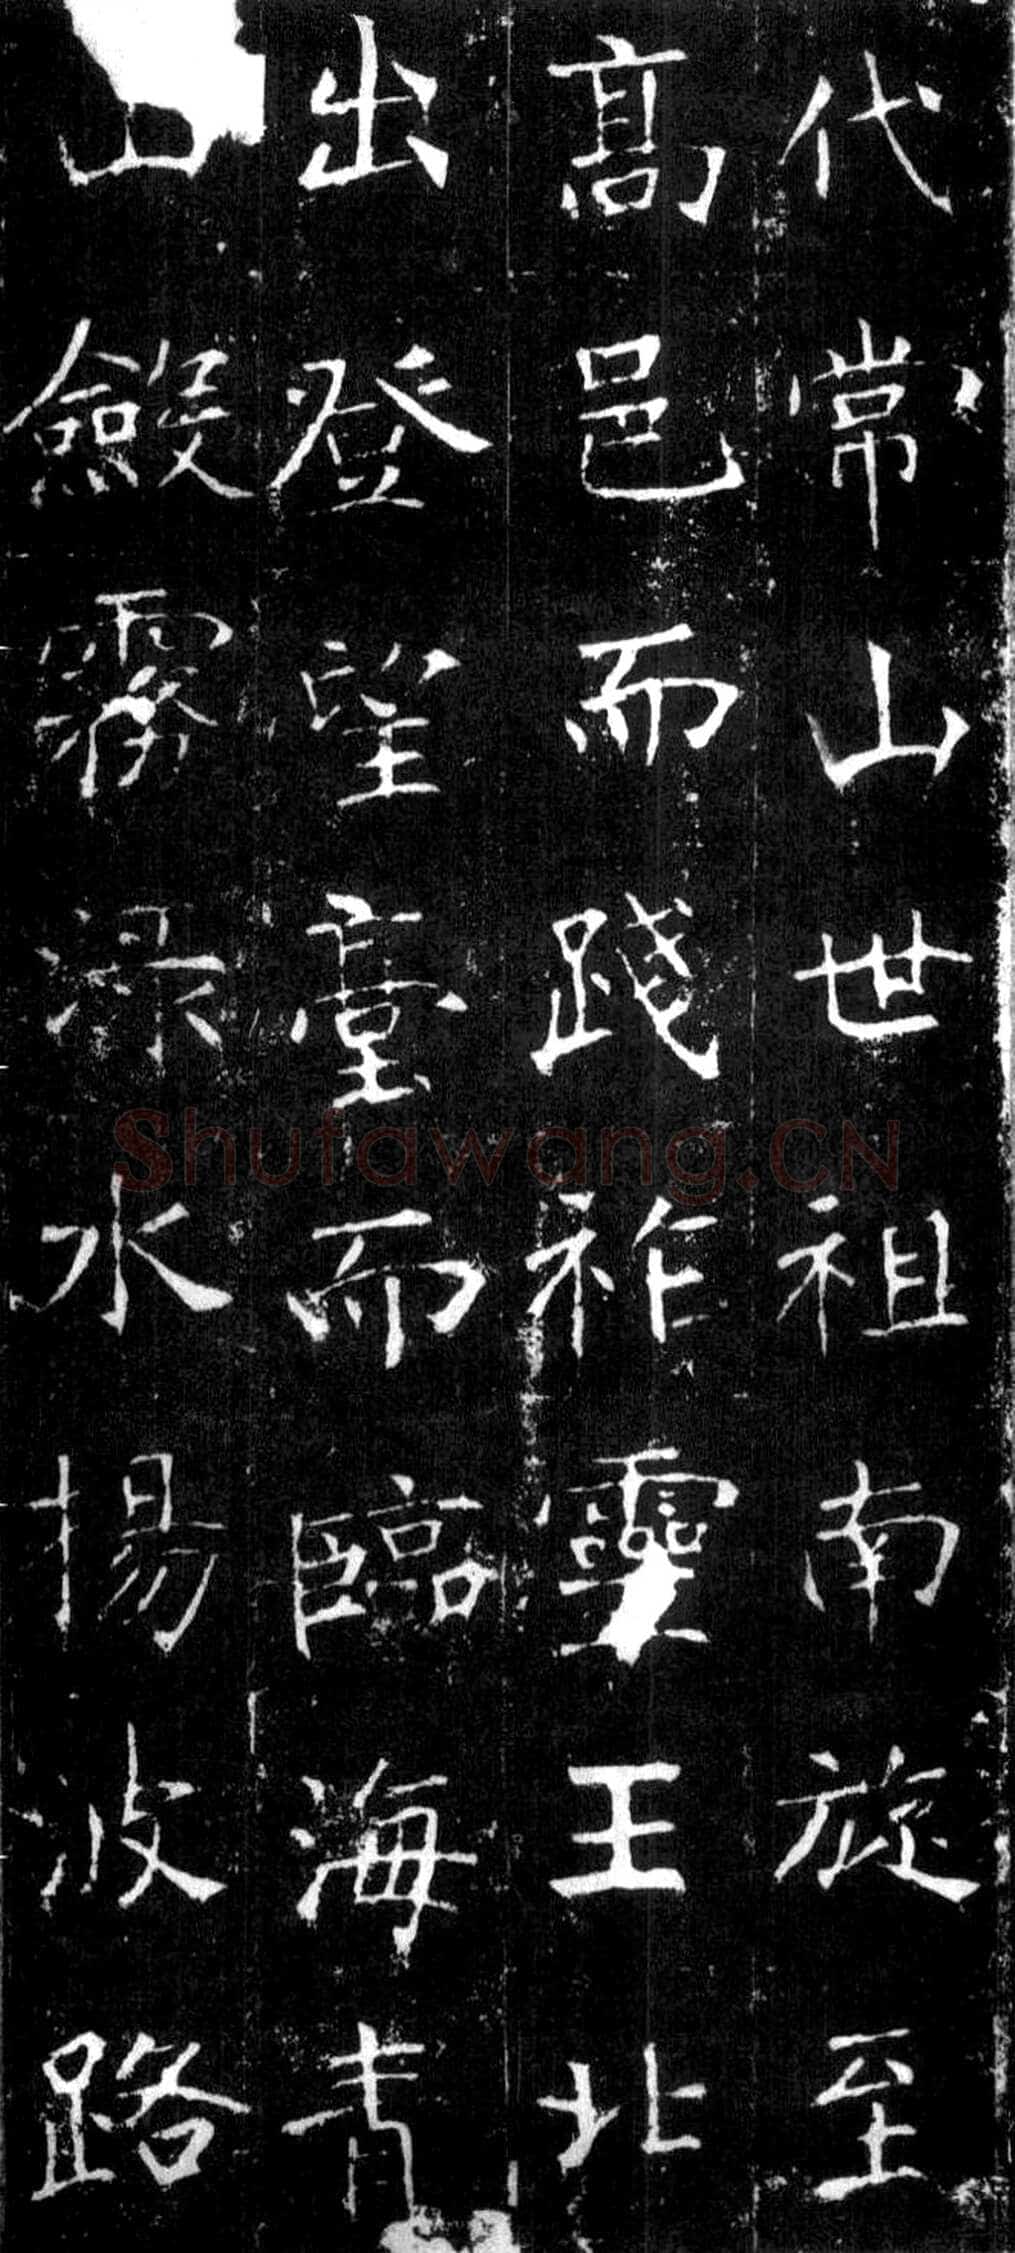 代常山世祖南旋至
高邑而踐祚靈王北
出登望臺而臨海青
山斂霧淥水揚波路
Shufawang.CN